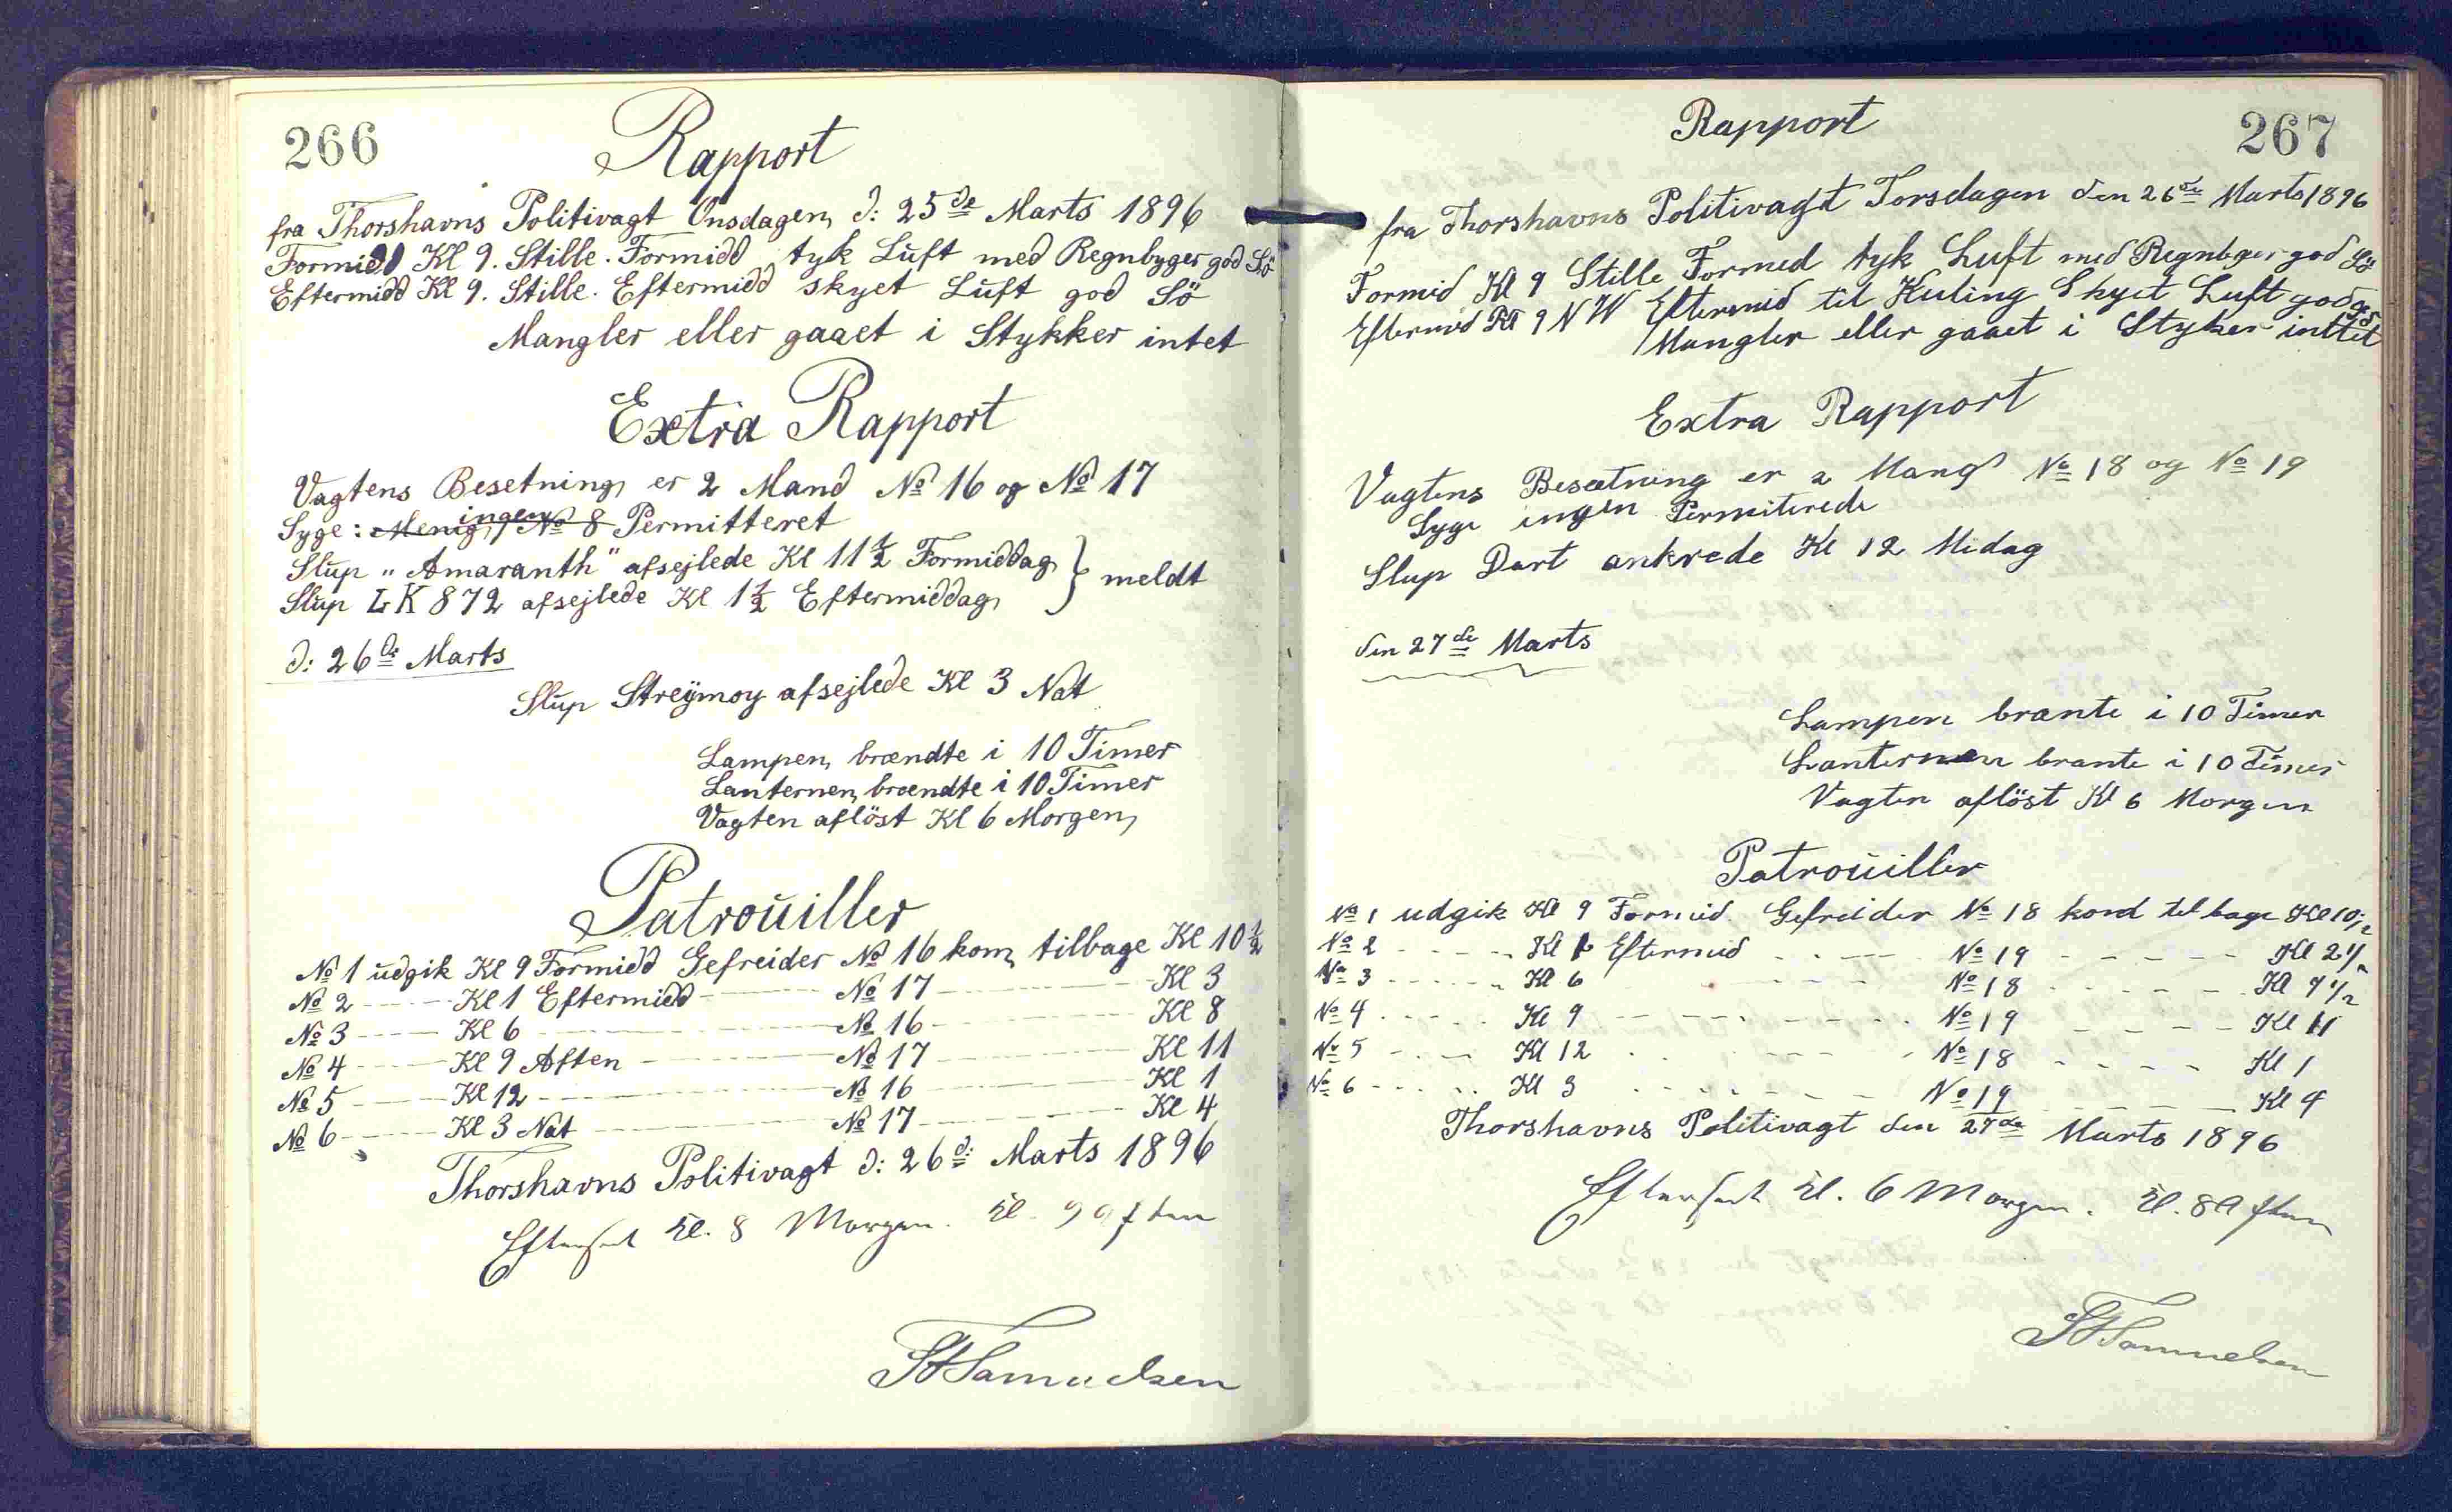 266
Rapport
fra Thorshavns Politivagt Onsdagen d: 25de Marts 1896
Formidd Kl 9. Stille. Formidd tyk Luft med Regnbyger god Sö
Eftermidd Kl 9. Stille. Eftermidd skyet Luft god Sö
Mangler eller gaaet i Stykker intet
Extra Rapport
Vagtens Besetning er 2 Mand No 16 og No 17
Syge: Menig No 8 ingen Permitteret
Slup „Amaranth" afsejlede Kl 11 1/2 Formiddag } meldt
Slup LK 872 afsejlede Kl 1 1/2 Eftermiddag
d: 26de Marts
Slup Streÿmoy afsejlede Kl 3 Nat
Lampen brændte i 10 Timer
Lanternen brændte i 10 Timer
Vagten aflöst Kl 6 Morgen
Patrouiller
No 1 udgik Kl 9 Formidd Gefreider No 16 kom tilbage Kl 10 1/2
No 2 Kl 1 Eftermidd No 17 Kl 3
No 3 Kl 6 No 16 Kl 8
No 4 Kl 9 Aften No 17 Kl 11
No 5 Kl 12 No 16 Kl 1
No 6 Kl 3 Nat No 17 Kl 4
Thorshavns Politivagt d: 26d: Marts 1896
Efterseet Kl. 8 Morgen. Kl. 9 Aften
Samuelsen
267
Rapport
fra Thorshavns Politivagt Torsdagen den 26de Marts 1896
Formid Kl 9 Stille Formed tyk Luft med Regnbger god Sö
Eftermid Kl 9 NW Eftermid til Kuling Skyet Luft god
Mangler eller gaaet i Styker inttet
Extra Rapport
Vagtens Besætning er 2 Mand No 18 og No 19
Syge ingen Permiterede
Slup Dart ankrede Kl 12 Midag
den 27de Marts
Lampen brante i 10 Timer
Lanternen brante i 10 Timer
Vagten aflöst Kl 6 Morgen
Patrouiller
No 1 udgik Kl 9 Formid Gefreider No 18 komd tilbage Kl 10 1/2
No 2 Kl 1 Eftermid No 19 Kl 2 1/2
No 3 Kl 6 No 18 Kl 7 1/2
No 4 Kl 9 No 19 Kl 11
No 5 Kl 12 No 18 Kl 1
No 6 Kl 3 No 19 Kl 4
Thorshavns Politivagt den 27de Marts 1896
Efterseet Kl. 6 Morgen. Kl. 8 Aften
Samuelsen